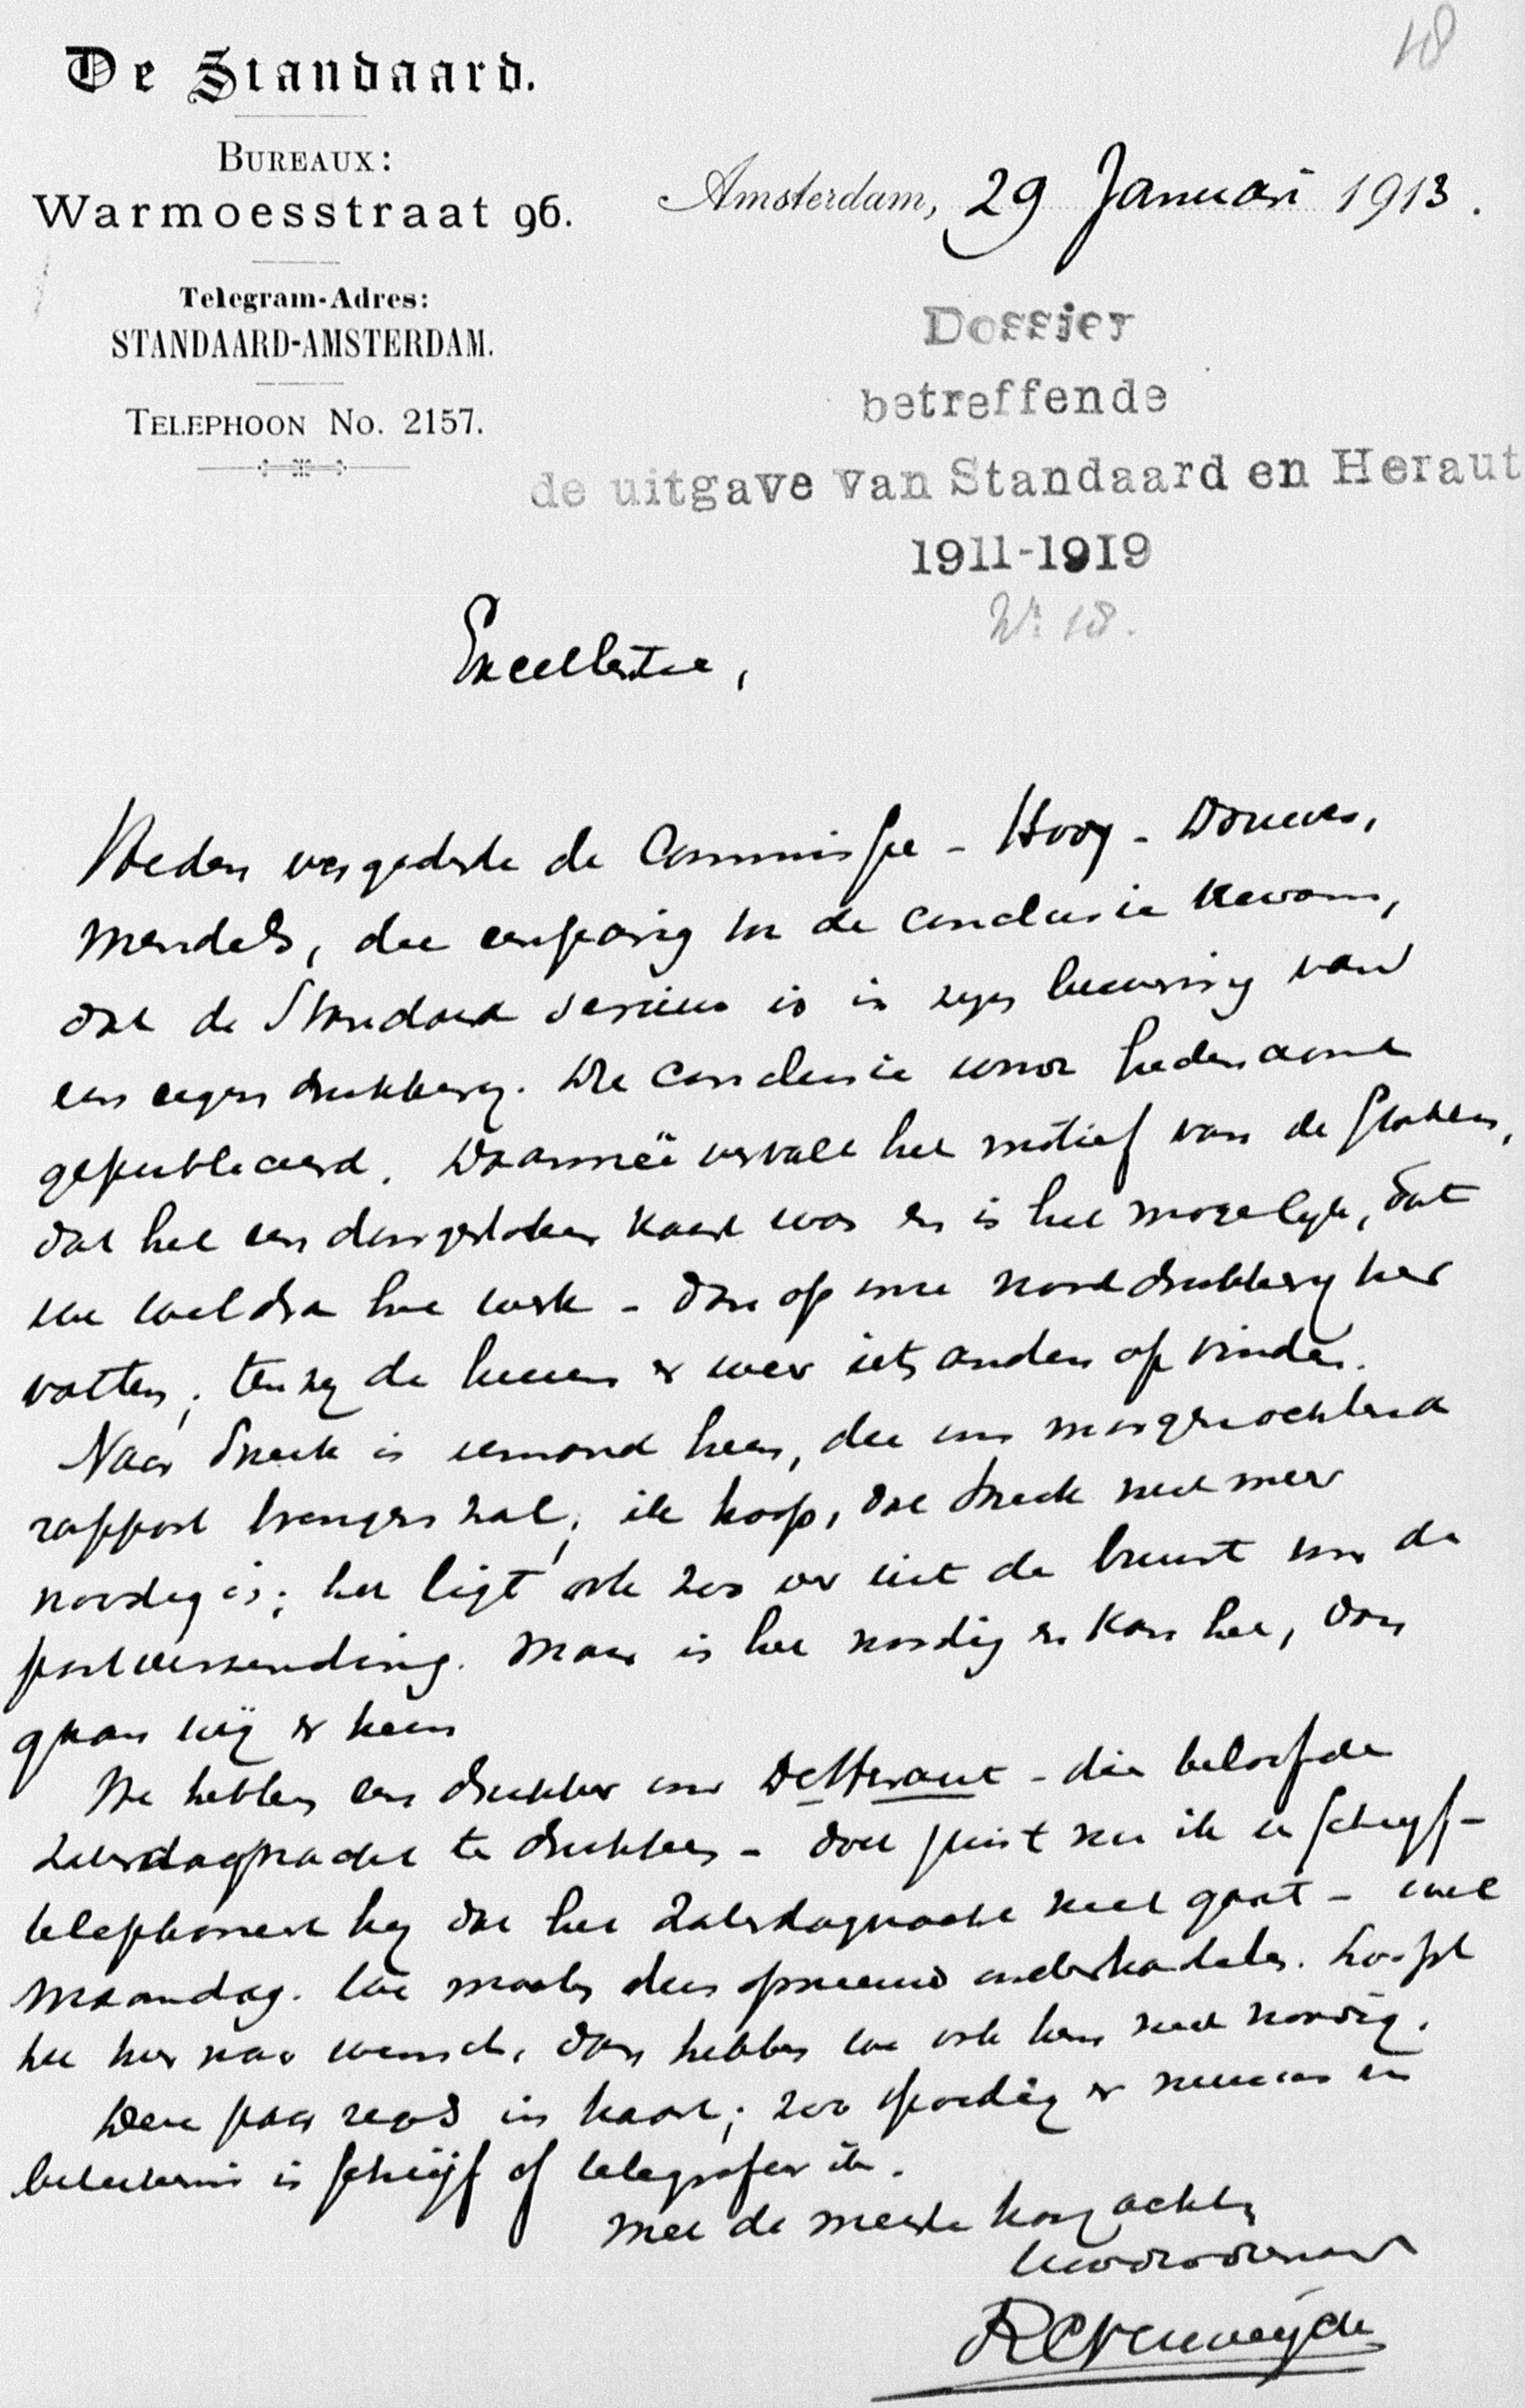 18
De Standaard.
BUREAUX:
Warmoesstraat 96.
Amsterdam, 29 Januari 1913.
Telegram-Adres:
STANDAARD-AMSTERDAM.
TELEPHOON No. 2157.
Dossier
betreffende
de uitgave van Standaard en Heraut
1911-1919
No. 18.
Excellentie,
Heden vergaderde de Commissie - Hooy - Douwes,
Mendels, die eenparig tot de conclusie kwam,
dat de Standaard serieus is in zijn bewering van
een eigen drukkerij. Die conclusie wordt hedenavond
gepubliceerd. Daarmeê vervalt het motief van de stakers,
dat het een doorgestoken kaart was en is het mogelijk, dat
we weldra het werk - dan op onze nooddrukkerij her
vatten; tenzij de heeren er weer iets anders op vinden.
Naar Sneek is iemand heen, die ons morgenochtend
rapport brengen zal; ik hoop, dat Sneek niet meer
noodig is; het ligt ook zoo ver uit de buurt voor de
postverzending. Maar is het noodig en kan het, dan
gaan wij er heen
We hebben een drukker voor De Heraut - die beloofde
Zaterdagnacht te drukken - doch juist nu ik u schrijf -
telephoneert hij dat het Zaterdagnacht niet gaat - wel
Maandag. We moeten dus opnieuw onderhandelen. Loopt
het hier naar wensch, dan hebben we ook hem niet noodig.
Deze paar regels in haast; zoo spoedig er nieuws van
beteekenis is schrijf of telegrafeer ik.
Met de meeste hoogachting
Uw dv dienaar
RCVerweyde